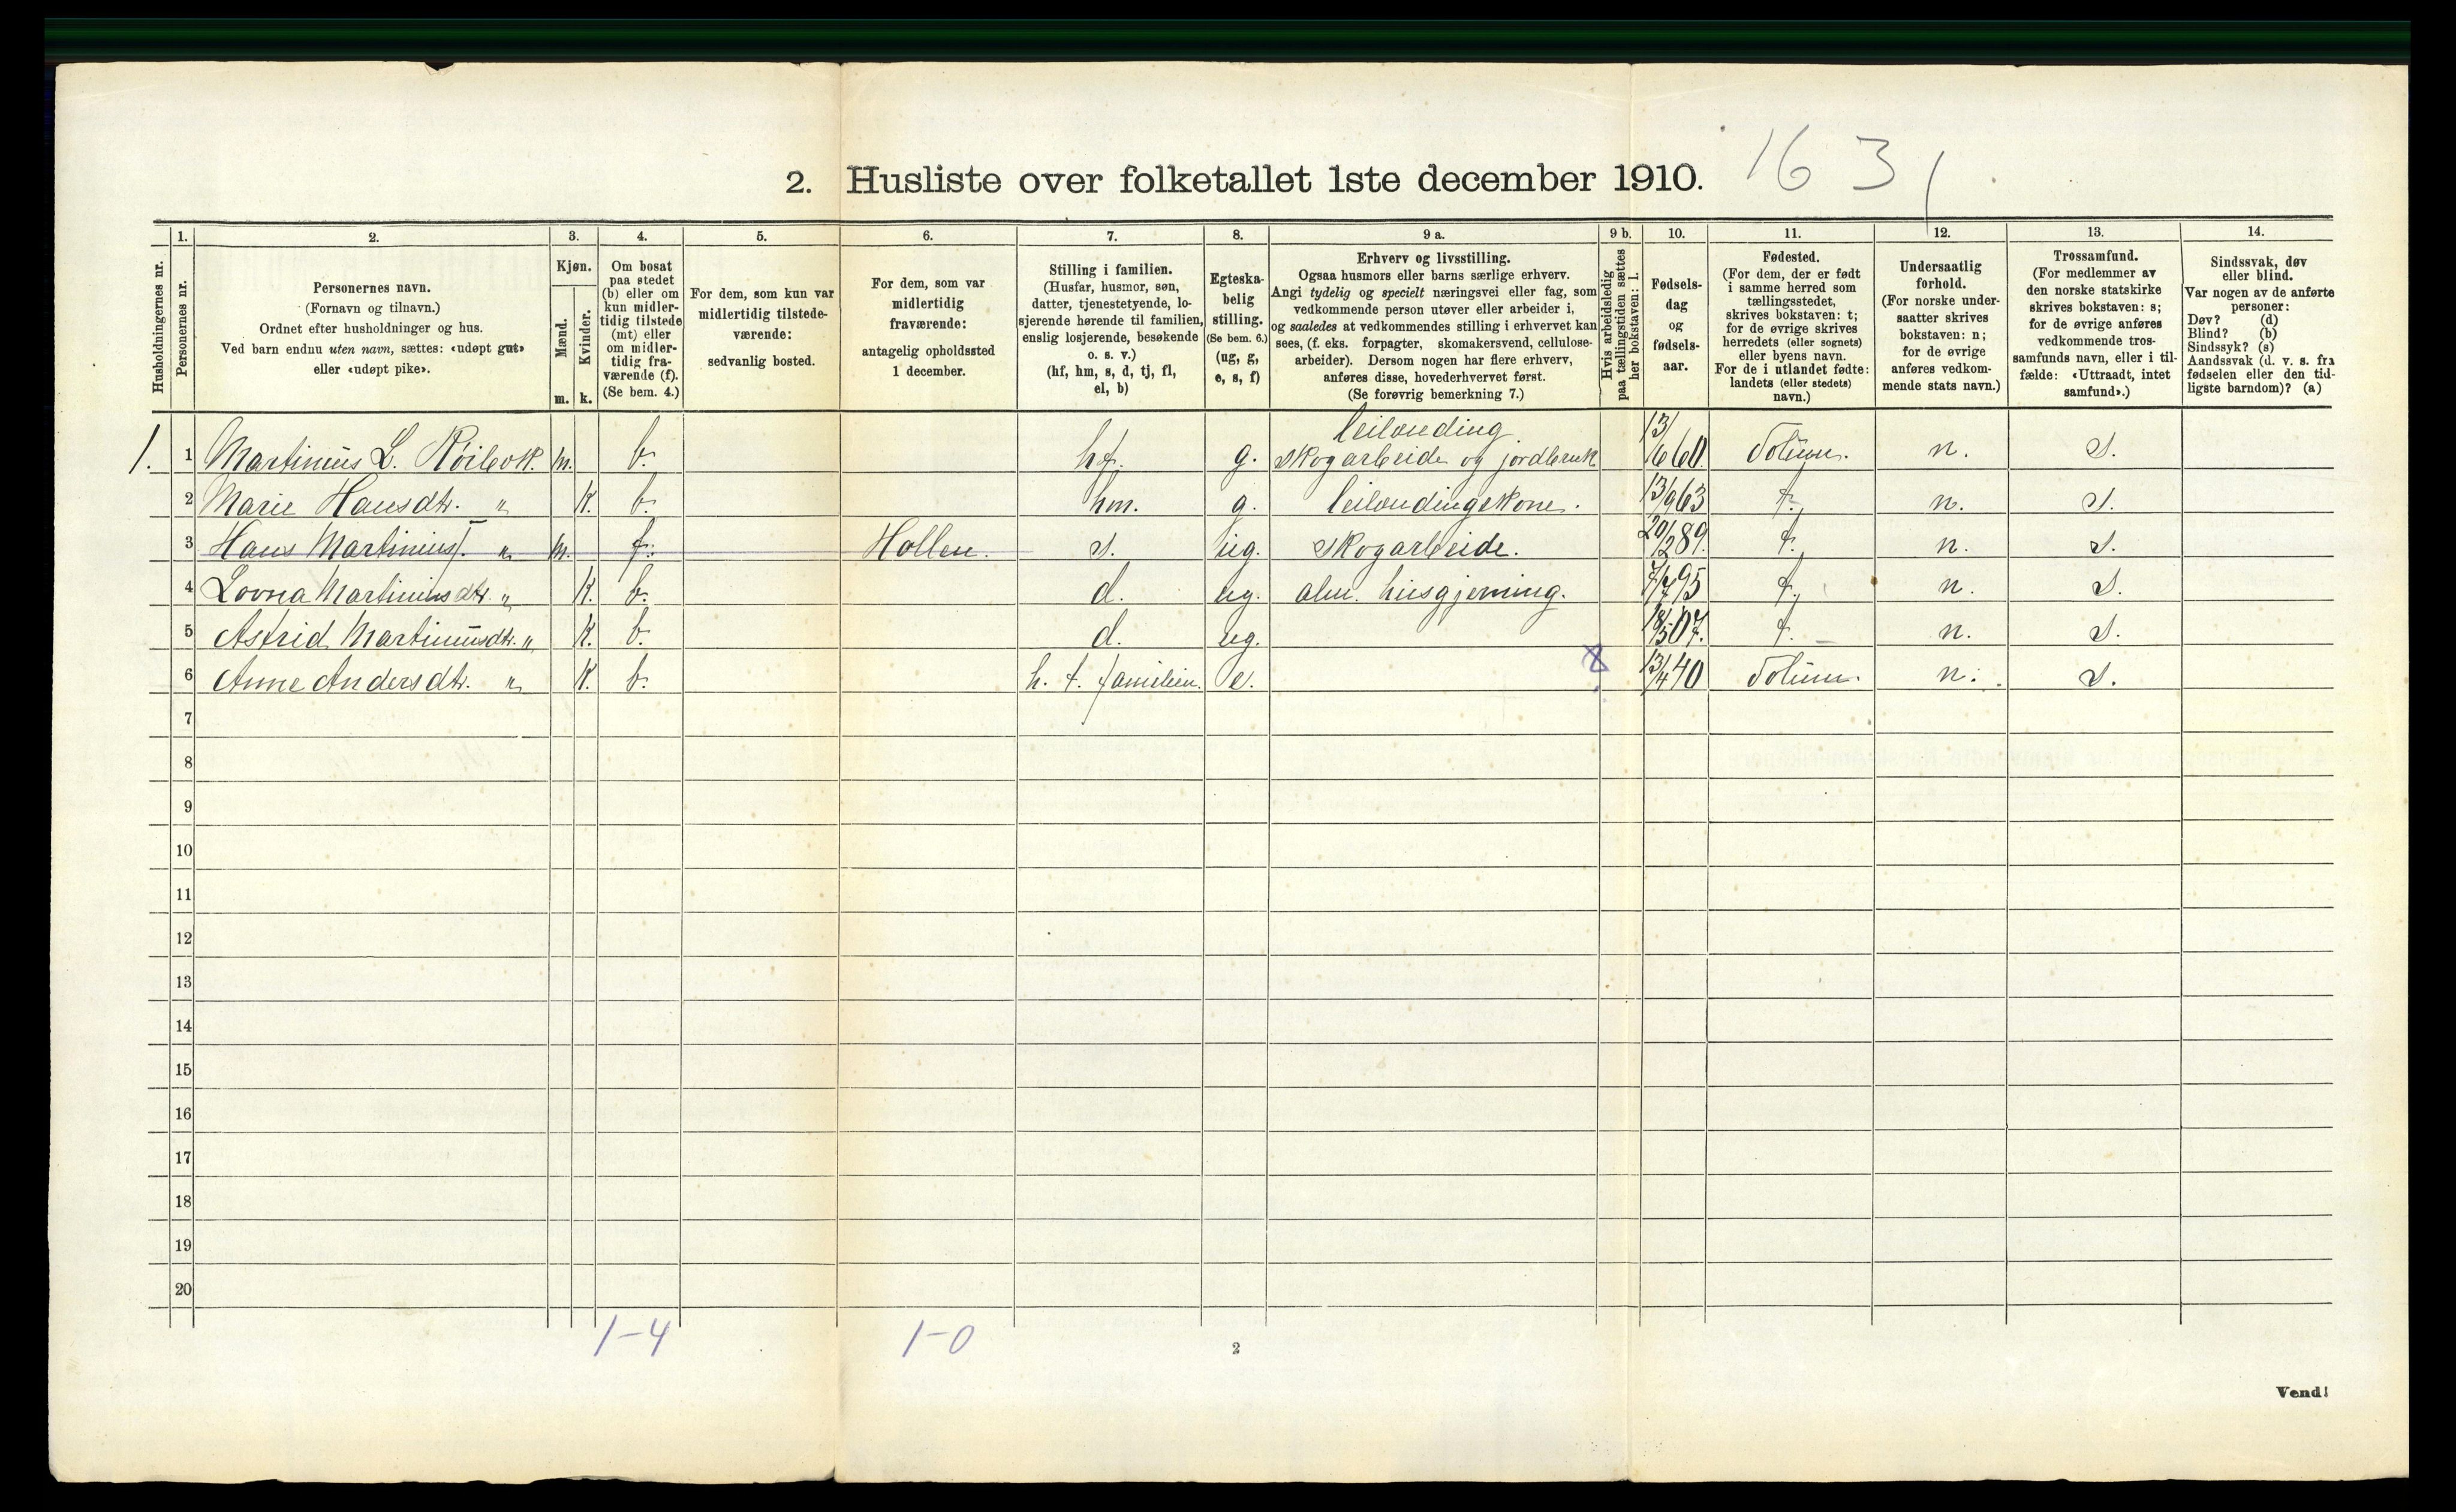 2. Husliste over folketallet 1ste december 1910. 1631
Husholdningernes nr.
1. Personernes nr.
2. Personernes navn.
(Fornavn og tilnavn.)
Ordnet efter husholdninger og hus.
Ved barn endnu uten navn, sættes: «udøpt gut»
eller «udøpt pike».
3. Kjøn.
Mænd. m.
Kvinder. k.
4. Om bosat
paa stedet
(b) eller om
kun midler-
tidig tilstede
(mt) eller
om midler-
tidig fra-
værende (f).
(Se bem. 4.)
5. For dem, som kun var
midlertidig tilstede-
værende:
sedvanlig bosted.
6. For dem, som var
midlertidig
fraværende:
antagelig opholdssted
1 december.
7. Stilling i familien.
(Husfar, husmor, søn,
datter, tjenestetyende, lo-
sjerende hørende til familien,
enslig losjerende, besøkende
o. s. v.)
(hf, hm, s, d, tj, fl,
el, b)
8. Egteska-
belig
stilling.
(Se bem. 6.)
(ug, g,
e, s, f)
9 a. Erhverv og livsstilling.
Ogsaa husmors eller barns særlige erhverv.
Angi tydelig og specielt næringsvei eller fag, som
vedkommende person utøver eller arbeider i,
og saaledes at vedkommendes stilling i erhvervet kan
sees, (f. eks. forpagter, skomakersvend, cellulose-
arbeider). Dersom nogen har flere erhverv,
anføres disse, hovederhvervet først.
(Se forøvrig bemerkning 7.)
9 b. Hvis arbeidsledig
paa tællingstiden sættes
her bokstaven: l.
10. Fødsels-
dag
og
fødsels-
aar.
11. Fødested.
(For dem, der er født
i samme herred som
tællingsstedet,
skrives bokstaven: t;
for de øvrige skrives
herredets (eller sognets)
eller byens navn.
For de i utlandet fødte:
landets (eller stedets)
navn.)
12. Undersaatlig
forhold.
(For norske under-
saatter skrives
bokstaven: n;
for de øvrige
anføres vedkom-
mende stats navn.)
13. Trossamfund.
(For medlemmer av
den norske statskirke
skrives bokstaven: s;
for de øvrige anføres
vedkommende tros-
samfunds navn, eller i til-
fælde: «Uttraadt, intet
samfund».)
14. Sindssvak, døv
eller blind.
Var nogen av de anførte
personer:
Døv? (d)
Blind? (b)
Sindssyk? (s)
Aandssvak (d. v. s. fra
fødselen eller den tid-
ligste barndom)? (a)
leilænding
1. 1 Martinius L. m. b. hf. g. skogarbeide og jordbruk 13/6 60. Solum. n. s.
2 Marie Hansdtr. " k. b. hm. g. leilændingskone. 13/9 63 t. n. s.
3 Hans Martinius. " m. f. Hollen. s. ug. skogarbeide. 20/2 89. t. n. s.
4 Lovna Martiniusdtr. " k. b. d. ug. alm. husgjerning. 7/7 95 t. n. s.
5 Astrid Martiniusdtr. " k. b. d. ug. 18/5 07. t. n. s.
6 Anne Andersdtr. " k. b. h. t. familien. e. 13/4 40 Solum. n. s.
7
8
9
10
11
12
13
14
15
16
17
18
19
20
1-4 1-0
2
Vend!